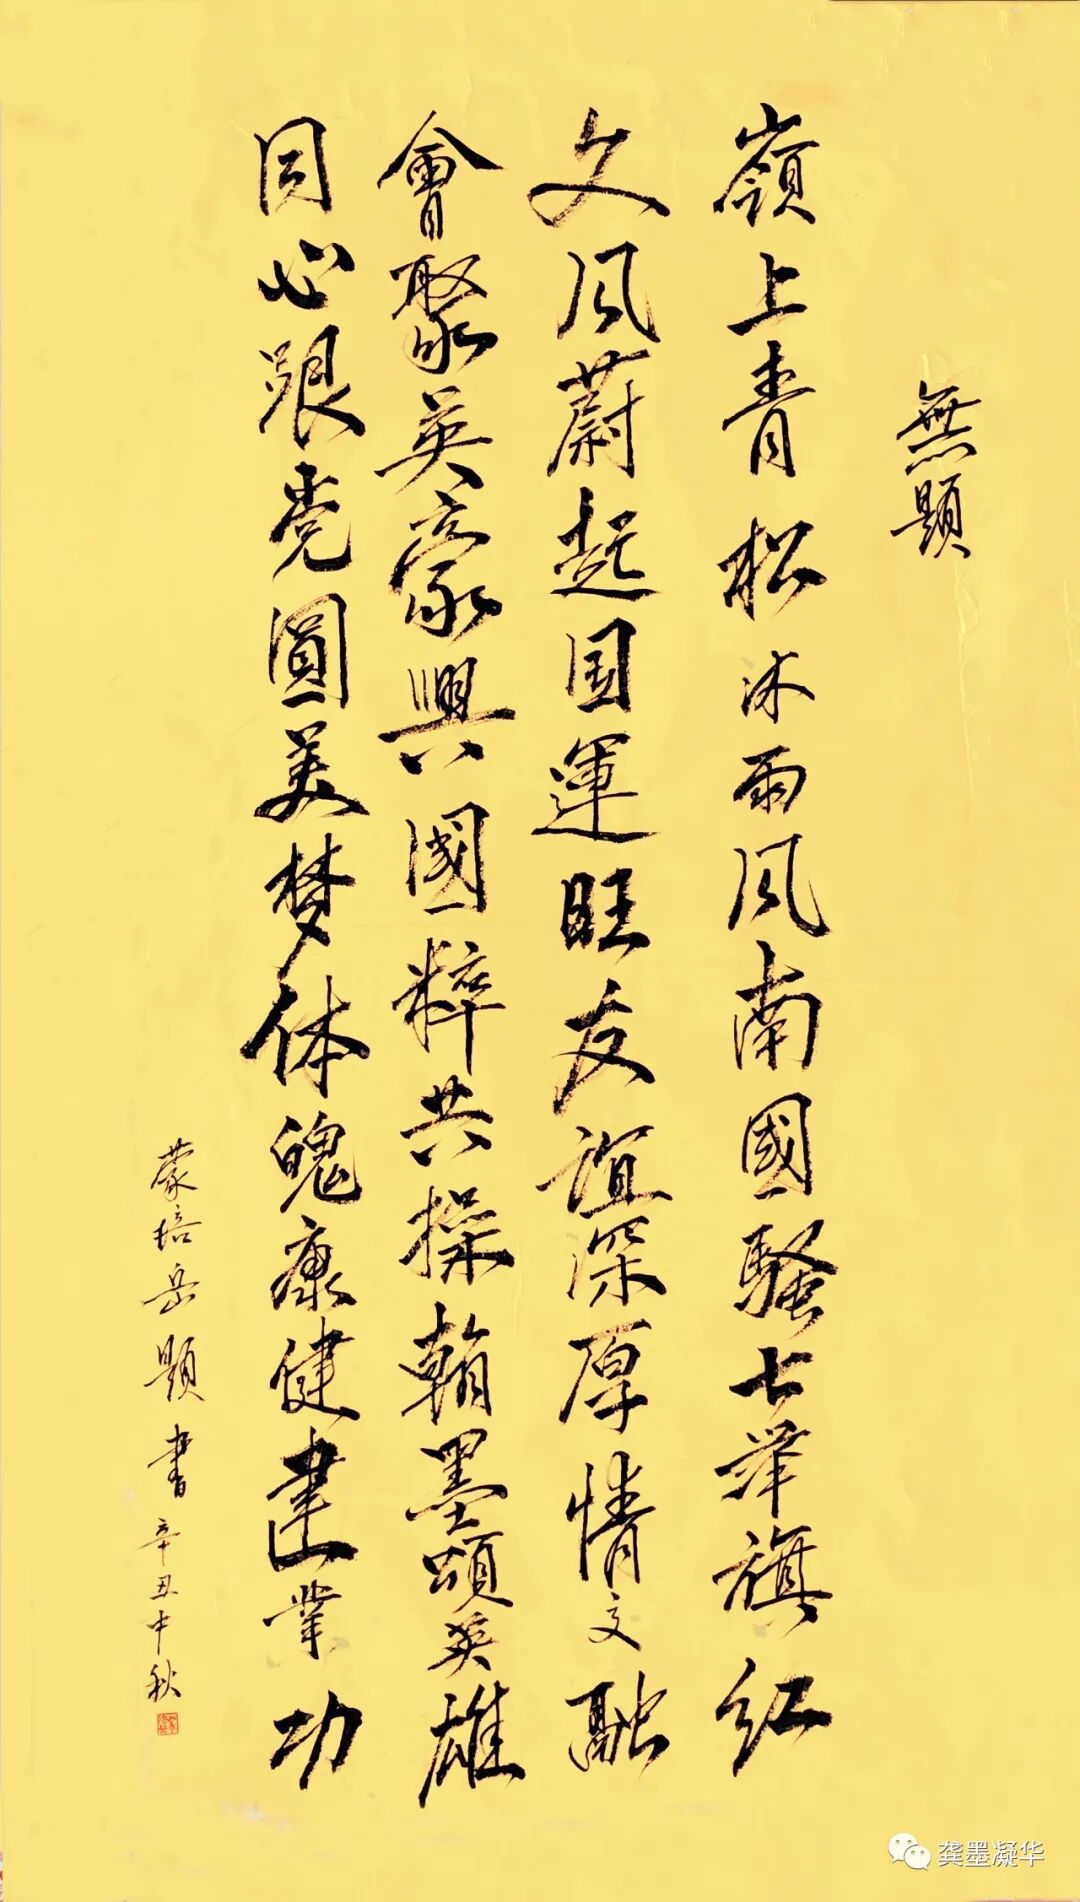 無題
嶺上青松沐雨风南國騷七举旗红
文风蔚起国運旺友谊深厚情交融
會聚英豪興國粹共操翰墨頌英雄
同心跟党圓美梦体魄康健建業功
蒙培岳題書辛丑中秋
龚墨凝华